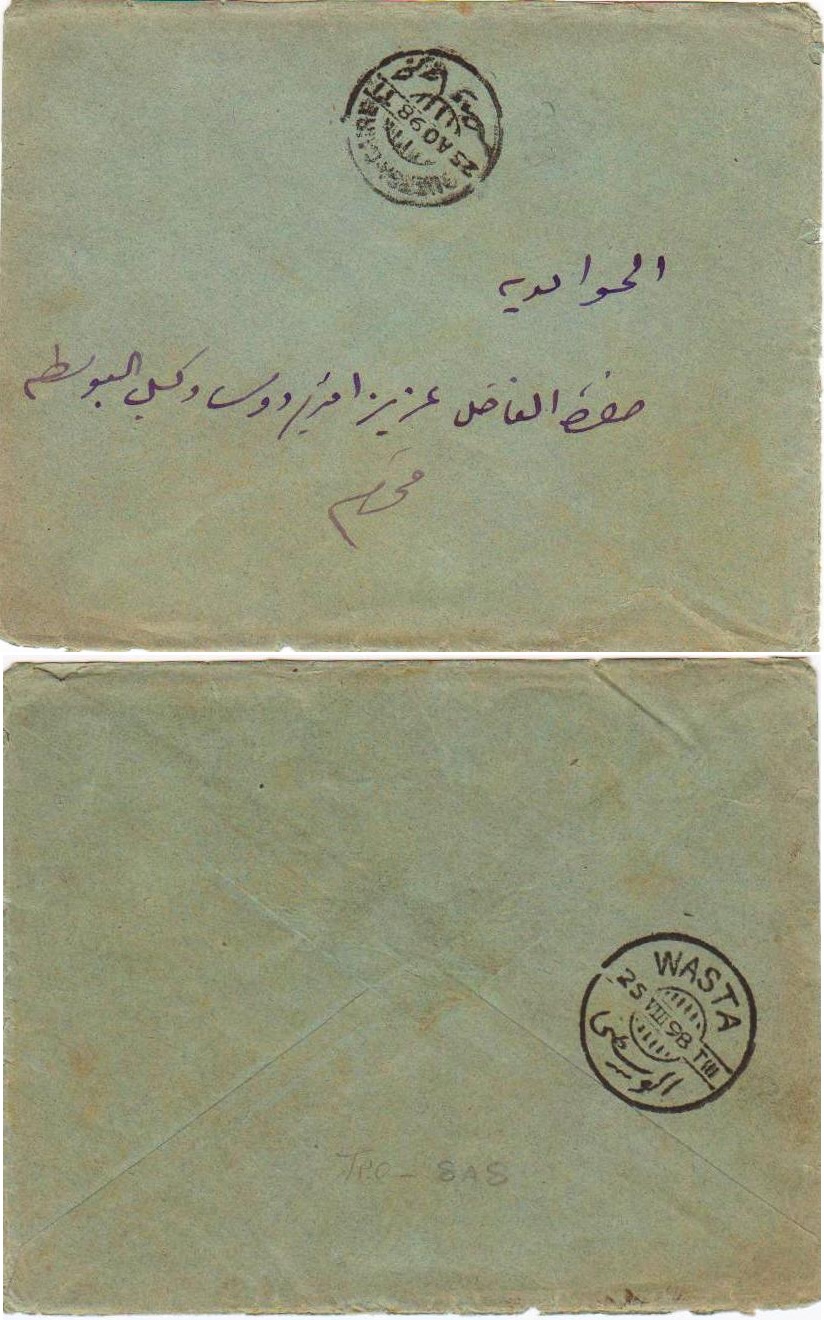 25 AO 98 T I
الحوامديه
حضرة الفاضل عزيز افندي دوس وكيل البوسطه
محترم
WASTA
25 VIII 98 T III
الوسطى
T.P.O - 8A8